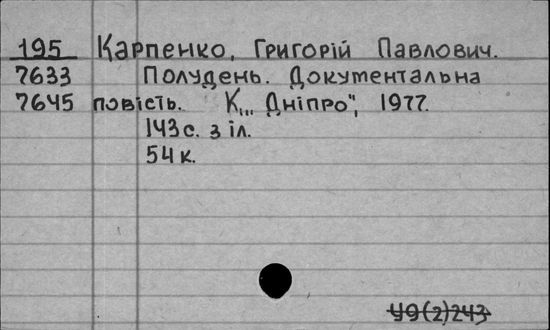 195 Карпенко, Григорій Павлович.
7633 Полудень. Документальна
7645 повість. К., „Дніпро", 1977.
143 с. з іл.
54 к.
49(2)243